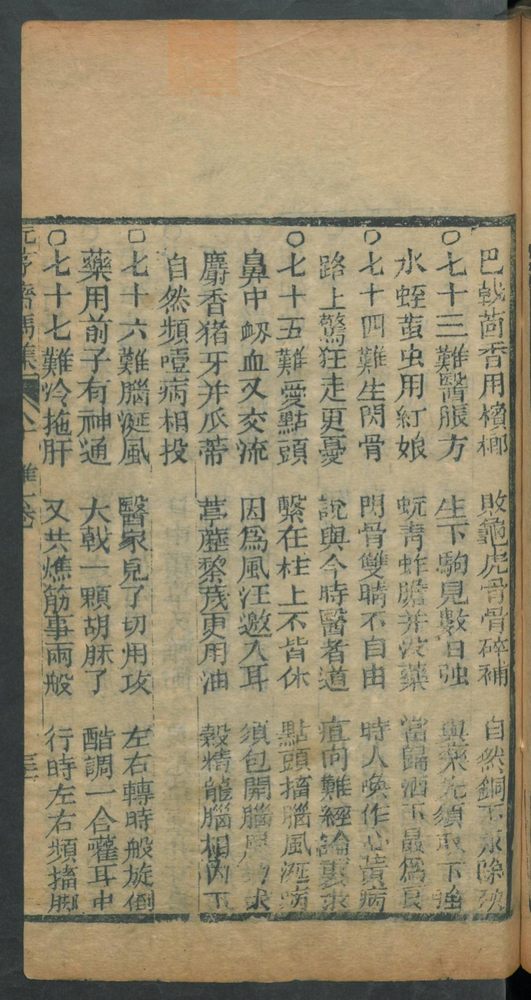 巴戟茴香用檳榔 敗龜虎骨骨碎補 自然銅 除殃
○七十三難醫脹方 生下駒見數日強 與藥先須取下強
水蛭䖟虫用紅娘 蚖青蚱膽并沒藥 當歸酒下最為良
○七十四難生閃骨 閃骨雙睛不自由 時人喚作心黃病
路上驚狂走更憂 說與今時醫者道 直向難經論裏求
○七十五難愛點頭 繫在柱上不皆休 點頭搐腦風涎病
鼻中衂血又交流 因為風汪邀入耳 須包開腦 求
麝香猪牙并瓜蒂 葶藶藜蘆更用油 穀精龍腦相 下
自然頻噎病相投
○七十六難腦涎風 醫家見了切用攻 左右轉時般旋倒
藥用前子有神通 大戟一顆胡麻了 酷調一合灌耳中
○七十七難冷拖肝 又共燋筋事兩般 行時左右頻搐脚
元亨療馬集 卷